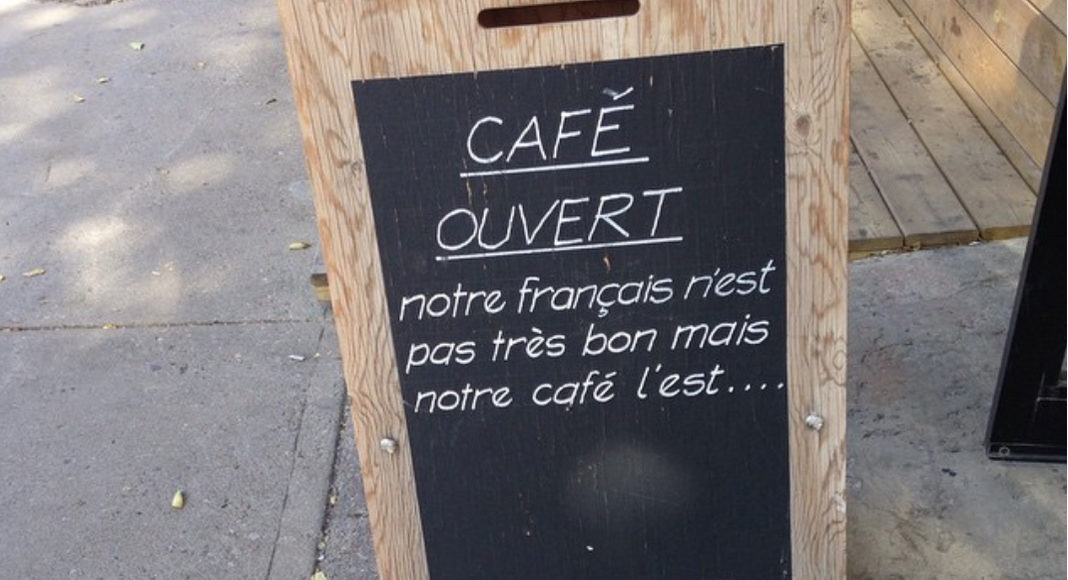 CAFÉ
OUVERT
notre français n'est
pas très bon mais
notre café l'est....